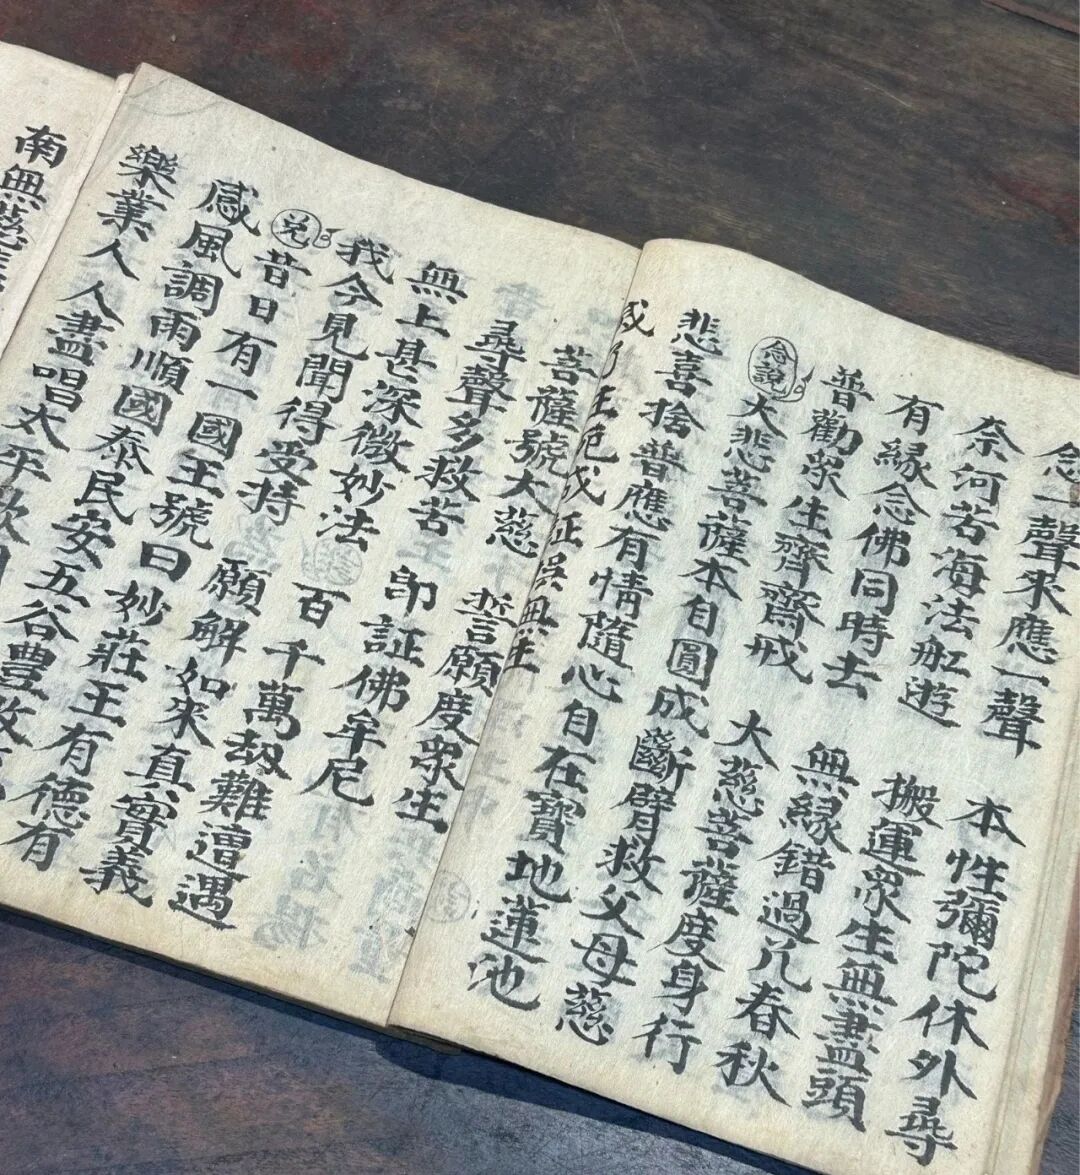 念一聲來應一聲 本性彌陀休外尋
奈河苦海法舡遊 搬運眾生無盡頭
有緣念佛同時去 無緣錯過几春秋
普勸眾生齊齋戒 大慈菩薩度身行
念說 大悲菩薩本自圓成斷臂救父母慈
悲喜捨普應有情隨心自在寶地蓮池
菩薩號大慈 誓願度眾生
尋聲多救苦 印証佛牟尼
無上甚深微妙法 百千萬劫難遭遇
我今見聞得受持 願解如來真實義
兌 昔日有一國王號曰妙莊王有德有
感風調雨順國泰民安五谷豐收
樂業人人盡唱太平歌
南無慈